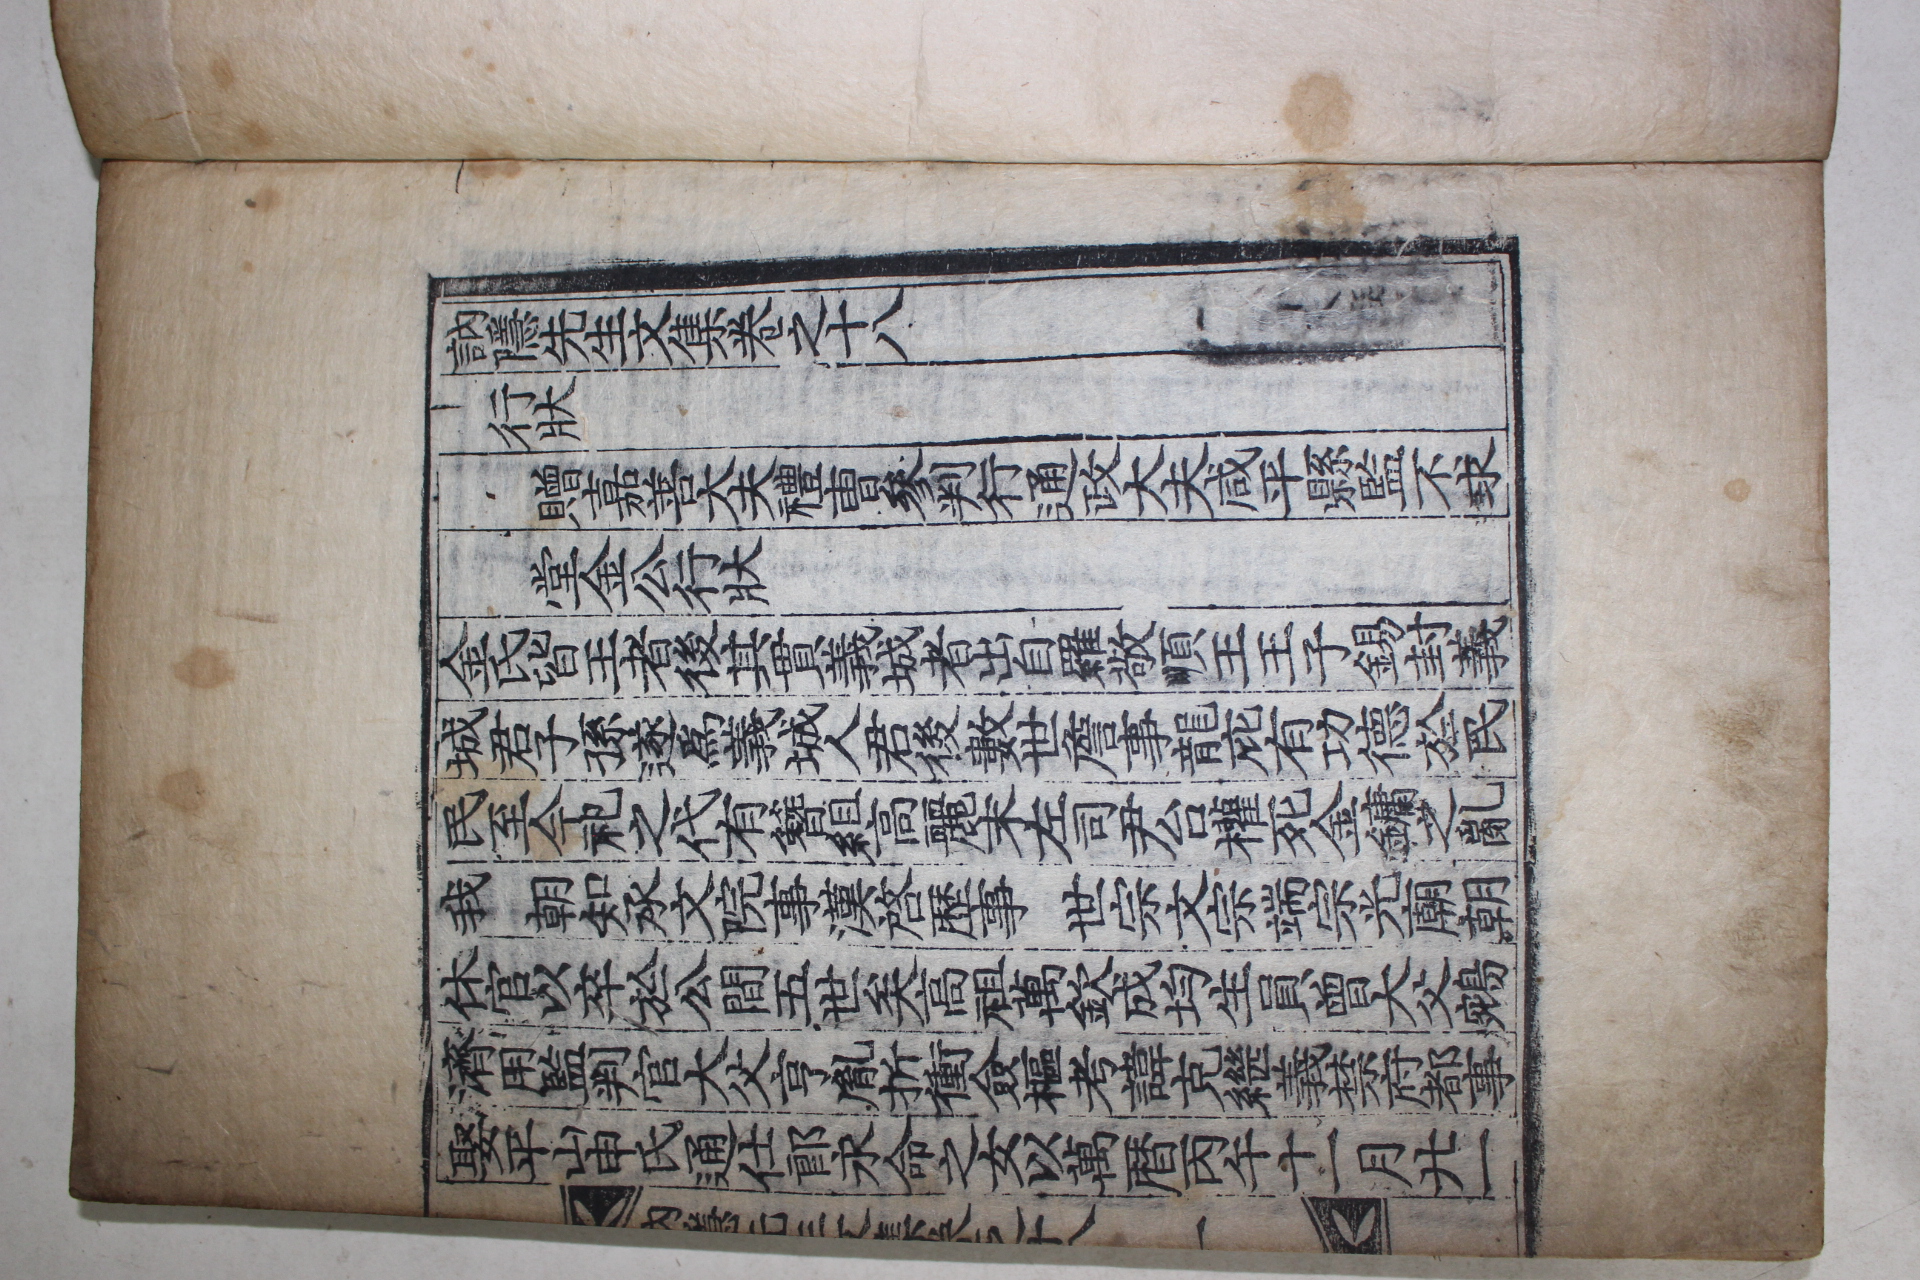 訥隱先生文集卷之十八
行狀
贈嘉善大夫禮曹參判行通政大夫咸平縣監不求
堂金公行狀
金氏皆王者後其貫義城者出自羅敬順王王子錫封義
城君子孫遂爲義城人君後數世詹事龍庇有功德於民
民至今祀之代有簪組高麗末左司尹台權死金鏞之亂
我 朝知承文院事漢啓歷事 世宗文宗端宗光廟朝
休官以卒於公間五世矣高祖萬欽成均生員曾大父鵷
濟用監判官大父亨胤折衝僉樞考諱克繼義禁府都事
娶平山申氏通仕郎永命之女以萬曆丙午十一月廿一
訥隱先生文集卷之十八 一